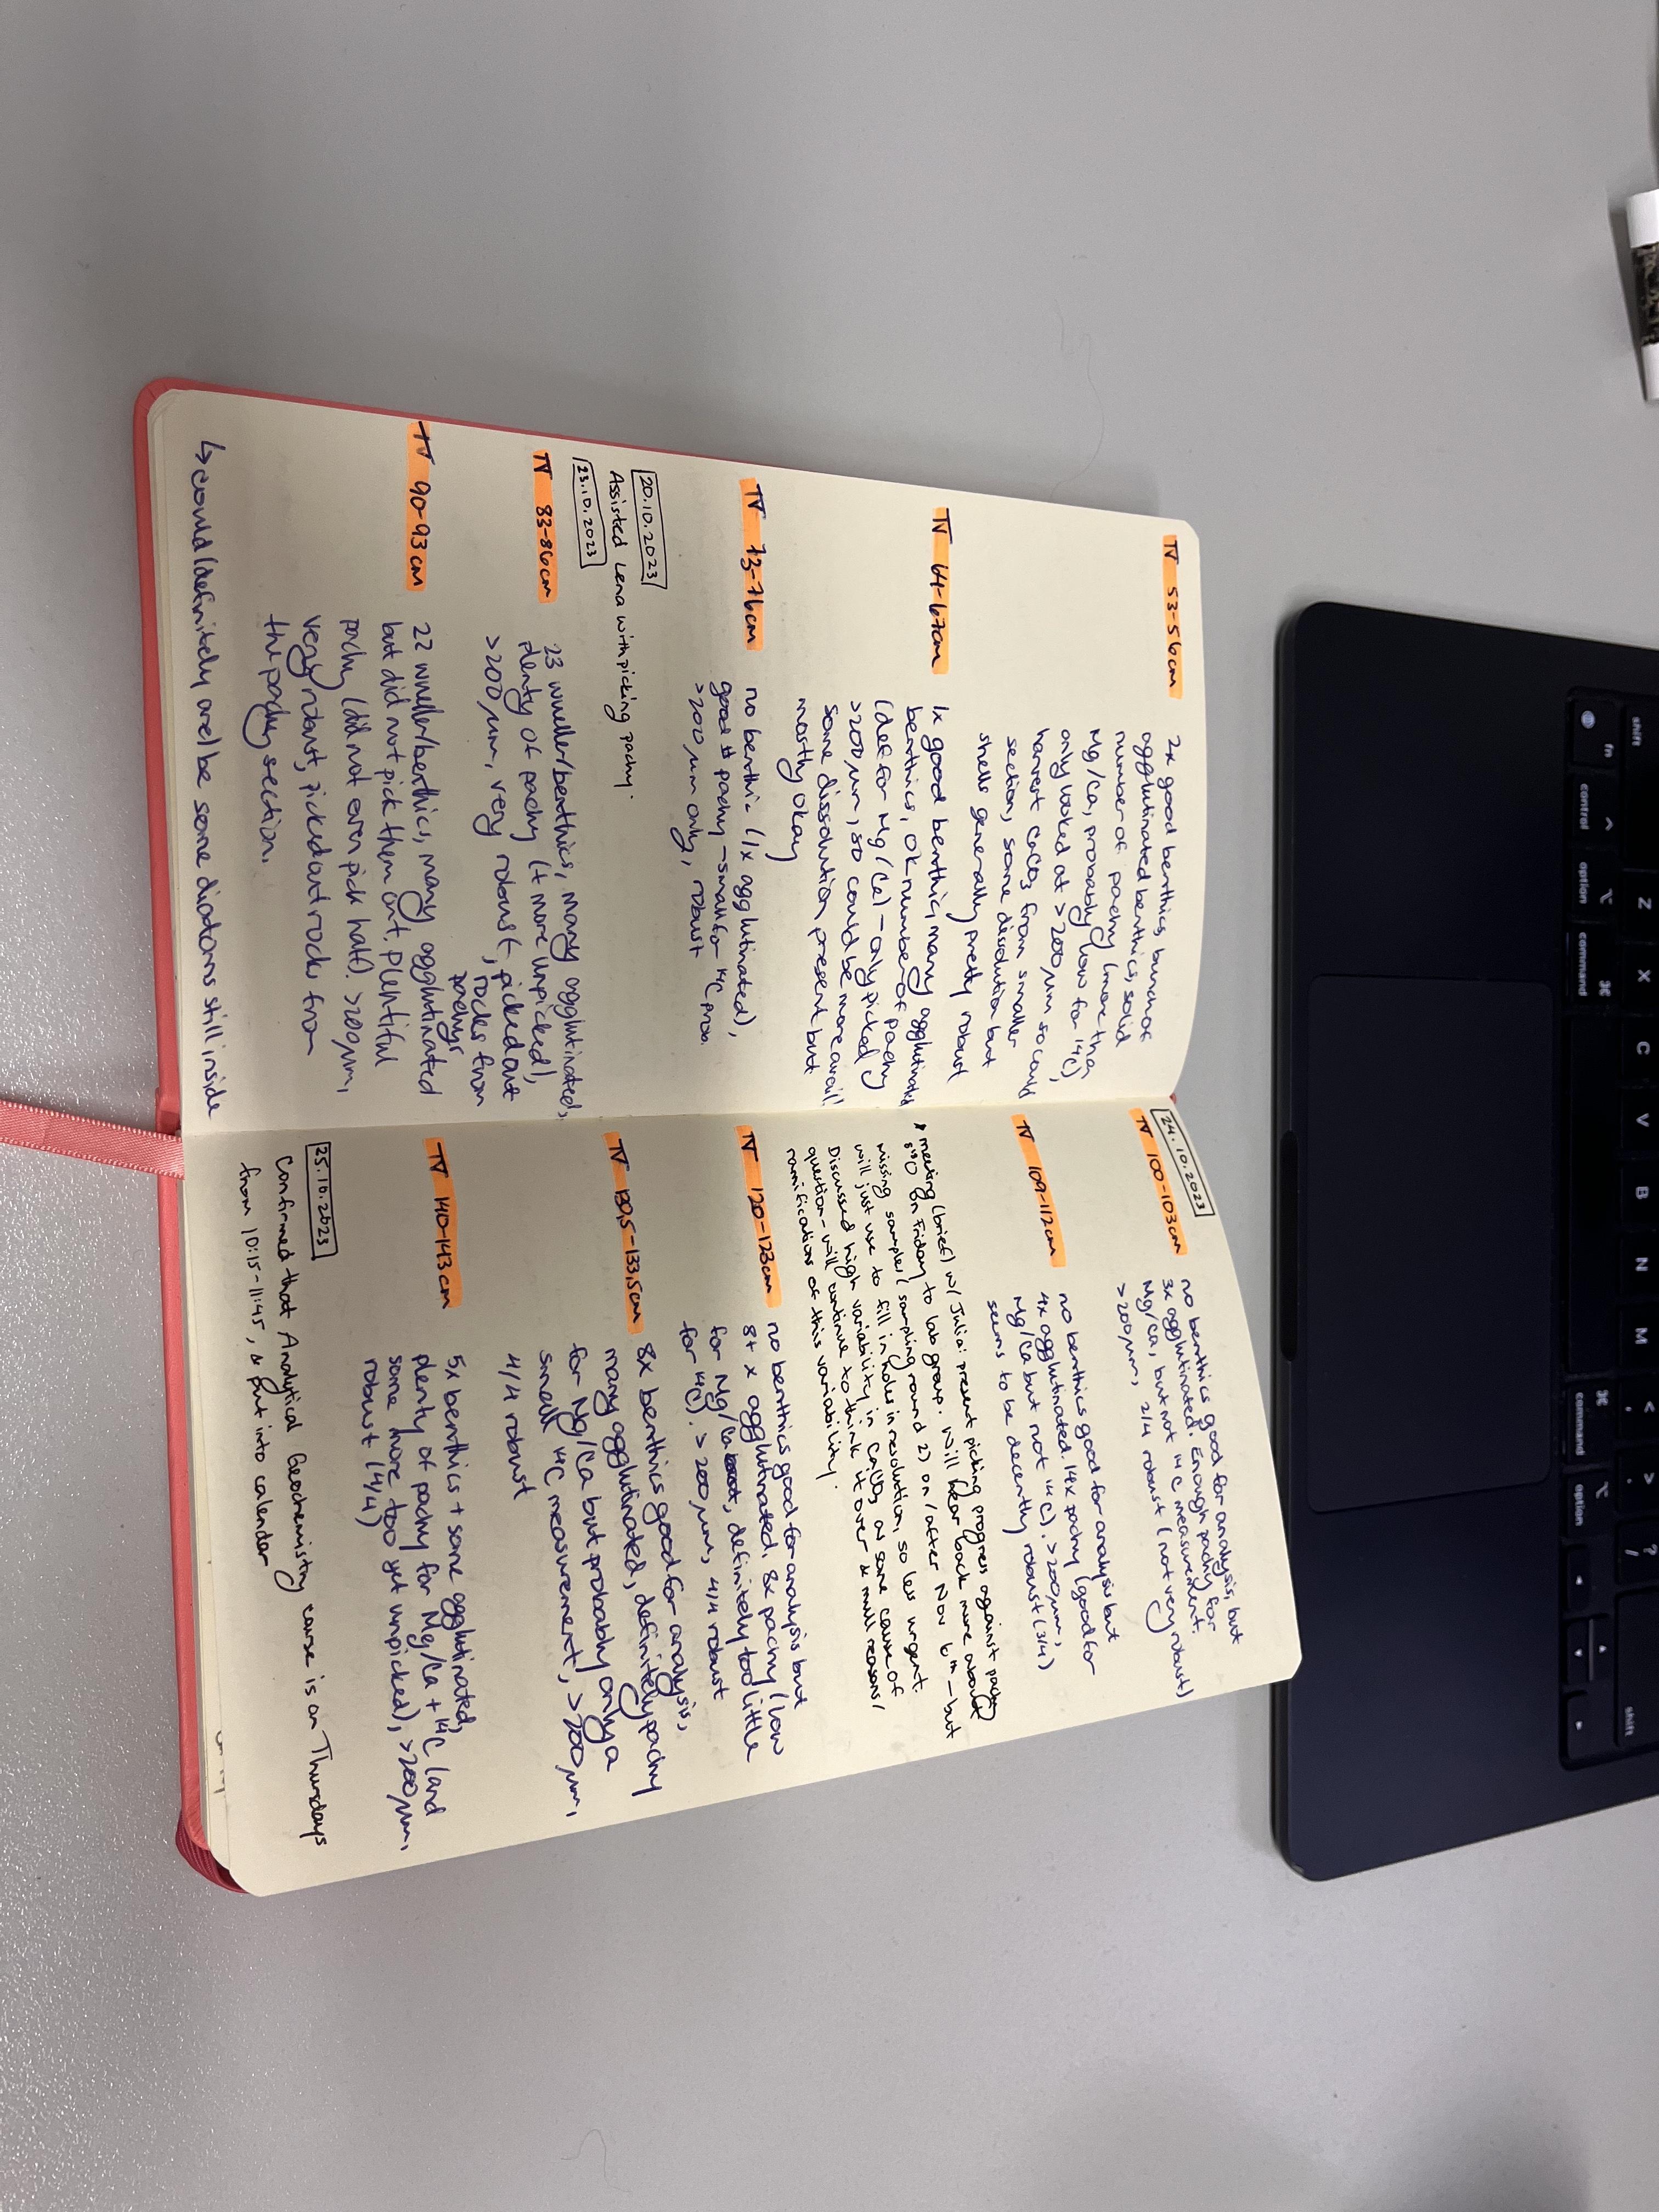 TV 53-56cm
2x good benthics, bunch of
agglutinated benthics, solid
number of pachy (more than
Mg/Ca, probably low for 14C),
only looked at >200µm so could
harvest CaCO3 from smaller
section, some dissolution but
shells generally pretty robust
TV 64-67cm
1x good benthic, many agglutinated
benthics, ok number of pachy
(def for Mg/Ca) - only picked
>200µm, so could be more avail.
some dissolution present but
mostly okay
TV 73-76cm
no benthic (1x agglutinated),
good # pachy - small for 14C prob.
>200µm only, robust
20.10.2023
Assisted Lena with picking pachy.
23.10.2023
TV 83-86cm
23 wueller/benthics, many agglutinated,
plenty of pachy (+ more unpicked),
>200µm, very robust, picked out
rocks from
pachys
TV 90-93cm
22 wueller/benthics, many agglutinated
but did not pick them out. Plentiful
pachy (did not even pick half). >200µm,
very robust, picked out rocks from
the pachy section.
↳ could/definitely are/be some diatoms still inside
24.10.2023
TV 100-103cm
no benthics good for analysis, but
3x agglutinated. Enough pachy for
Mg/Ca, but not 14C measurement.
>200µm, 2/4 robust (not very robust)
TV 109-112cm
no benthics good for analysis but
4x agglutinated. 14x pachy (good for
Mg/Ca but not 14C). >200µm,
seems to be decently robust (3/4)
* meeting (brief) w/ Julia: present picking progress against pachy
δ18O on Friday to lab group. Will hear back more about
missing samples (sampling round 2) on/after Nov 6th - but
will just use to fill in holes in resolution, so less urgent.
Discussed high variability in CaCO3 as some cause of
question - will continue to think it over & mull reasons/
ramifications of this variability.
TV 120-123cm
no benthics good for analysis but
8+ x agglutinated. 8x pachy (low
for Mg/Ca, definitely too little
for 14C). >200µm, 4/4 robust
TV 130,5-133,5cm
8x benthics good for analysis,
many agglutinated, definitely pachy
for Mg/Ca but probably only a
small 14C measurement, >200µm,
4/4 robust
TV 140-143cm
5x benthics + some agglutinated,
plenty of pachy for Mg/Ca + 14C (and
some more too yet unpicked), >200µm,
robust (4/4)
25.10.2023
Confirmed that Analytical Geochemistry course is on Thursdays
from 10:15-11:45, & put into calender
shift
fn
control
option
command
Z
X
C
V
B
N
M
<
,
>
.
?
/
command
option
shift